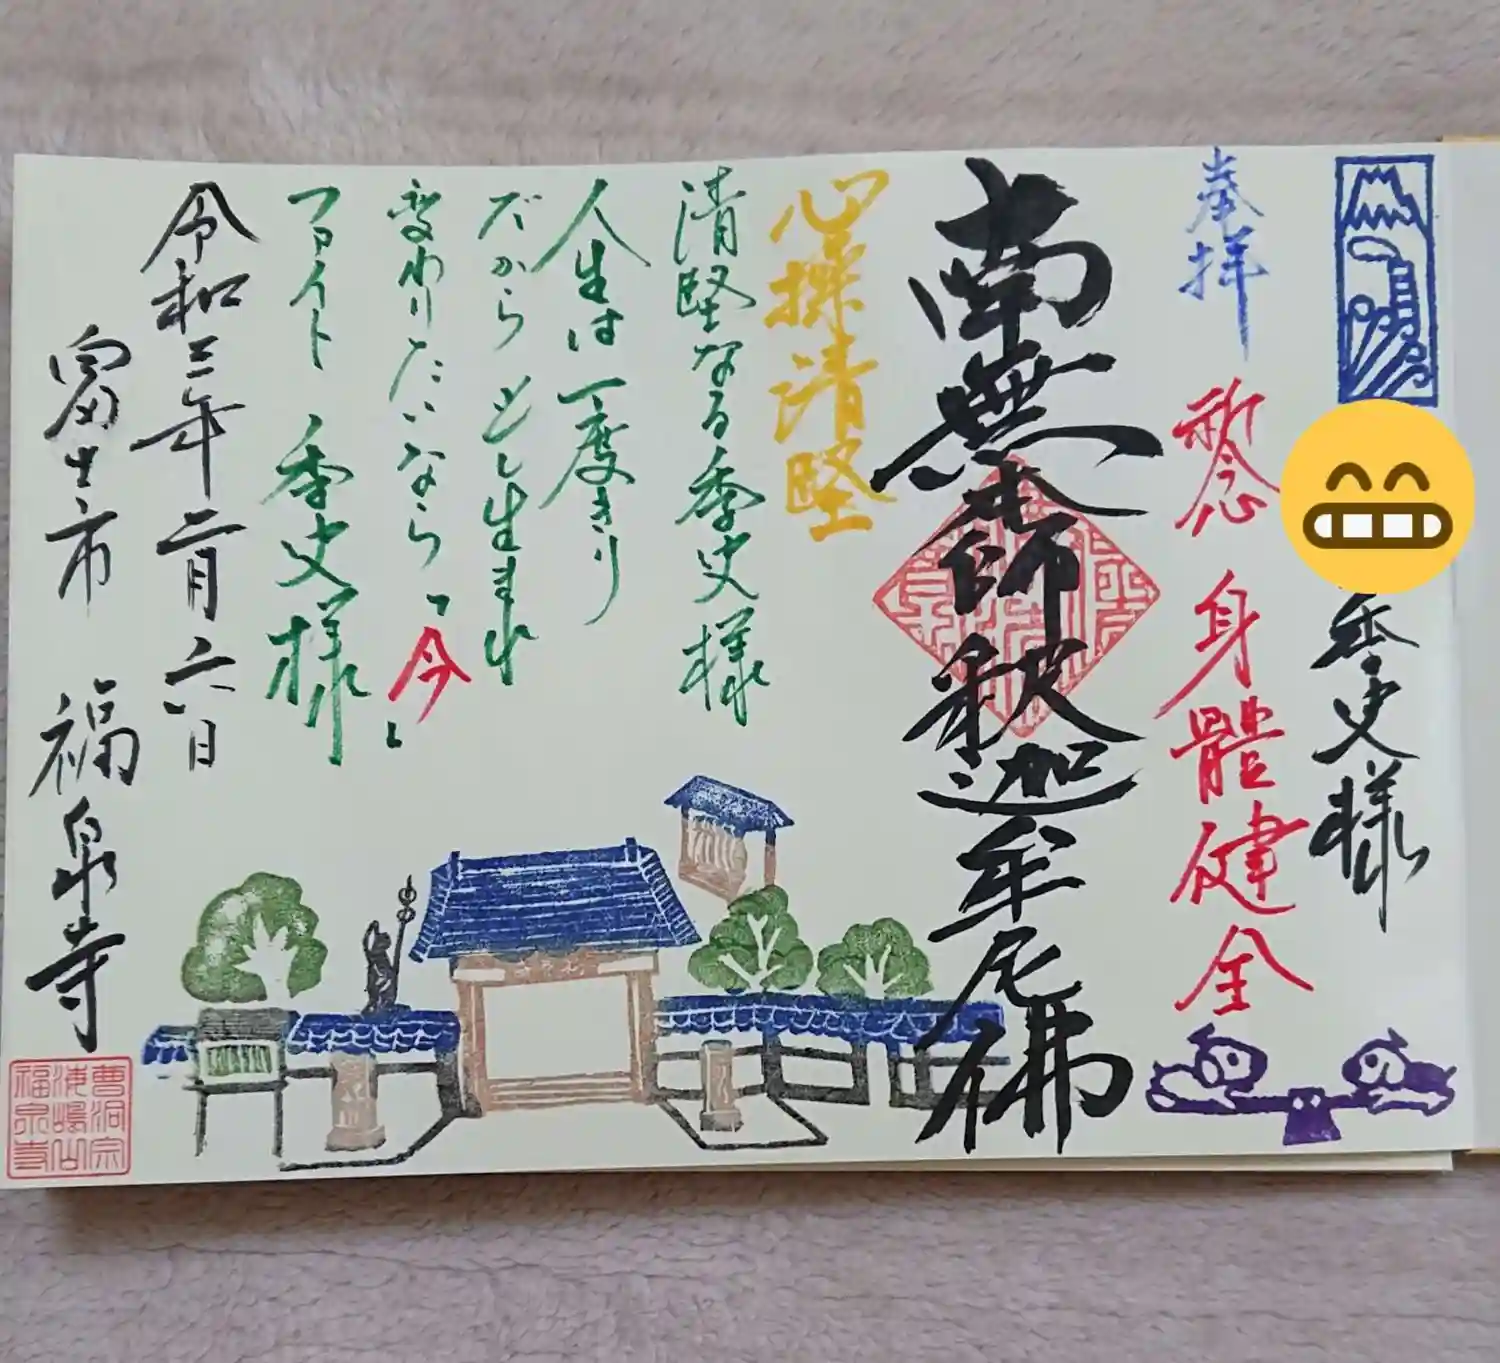 季史様
奉拝
祈念 身體健全
南無本師釈迦牟尼佛
心操清堅
清堅なる季史様
人生は一度きり
だからもし生まれ
変わりたいなら「今」
ファイト 季史様
令和三年二月六日
富士市 福泉寺
曹洞宗
福泉寺